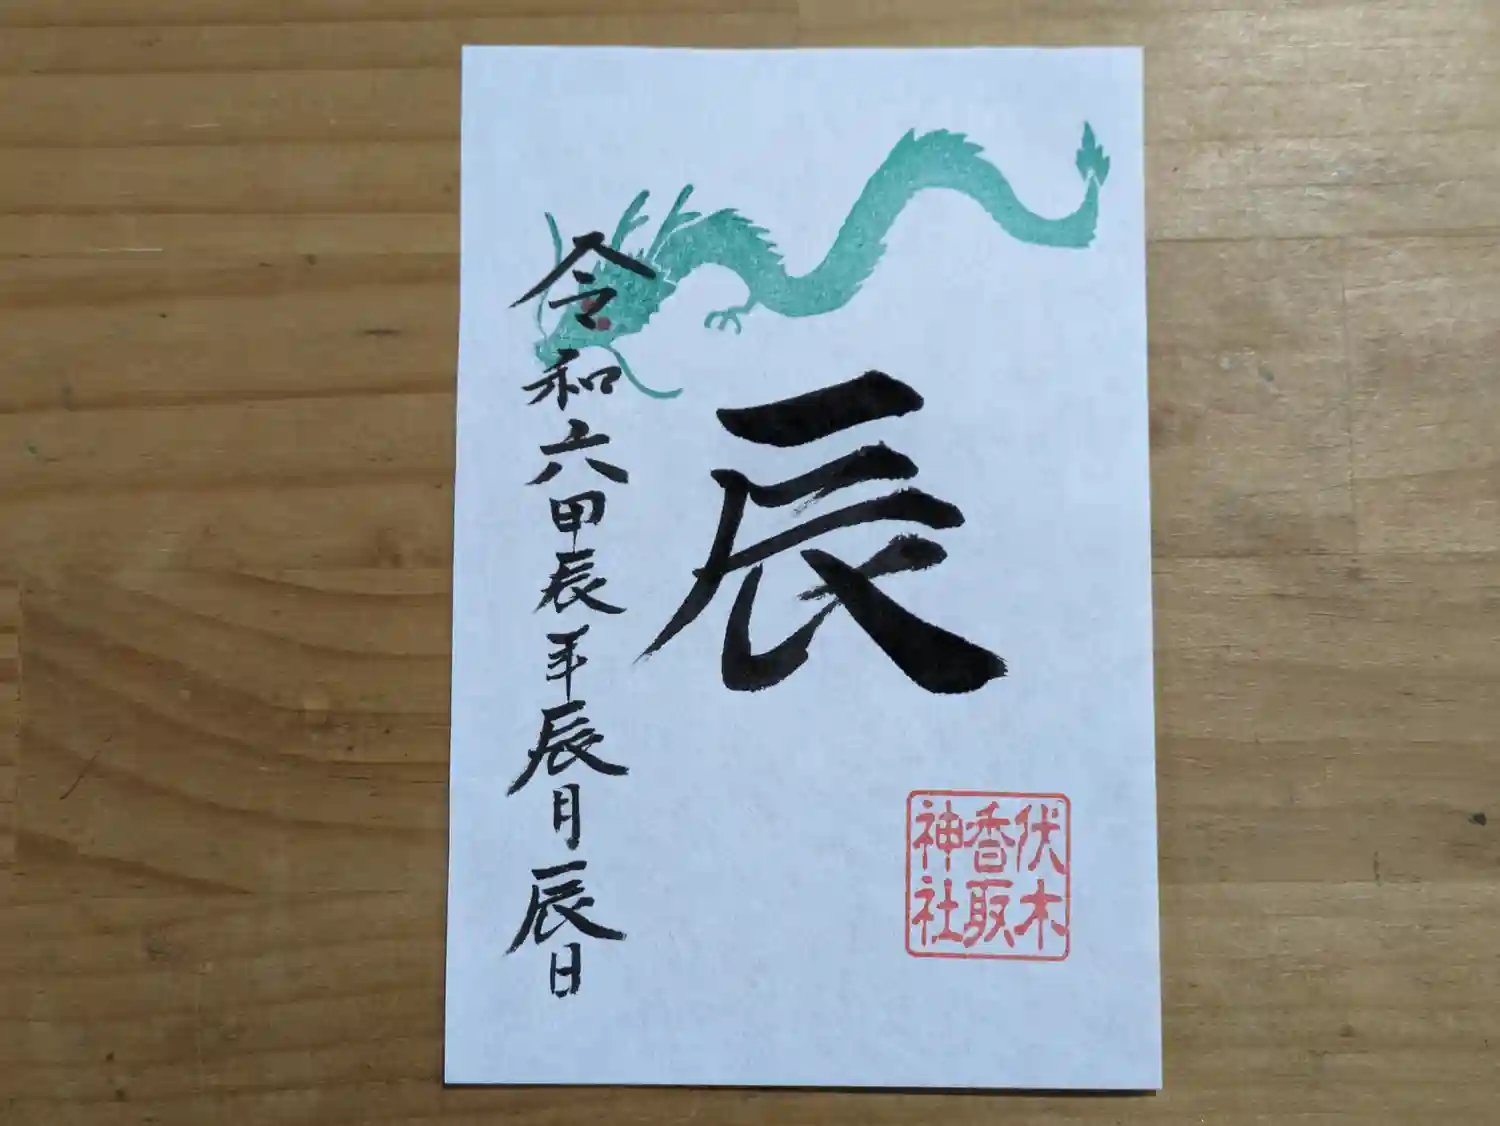 辰
伏木
香取
神社
令和六甲辰年辰月辰日